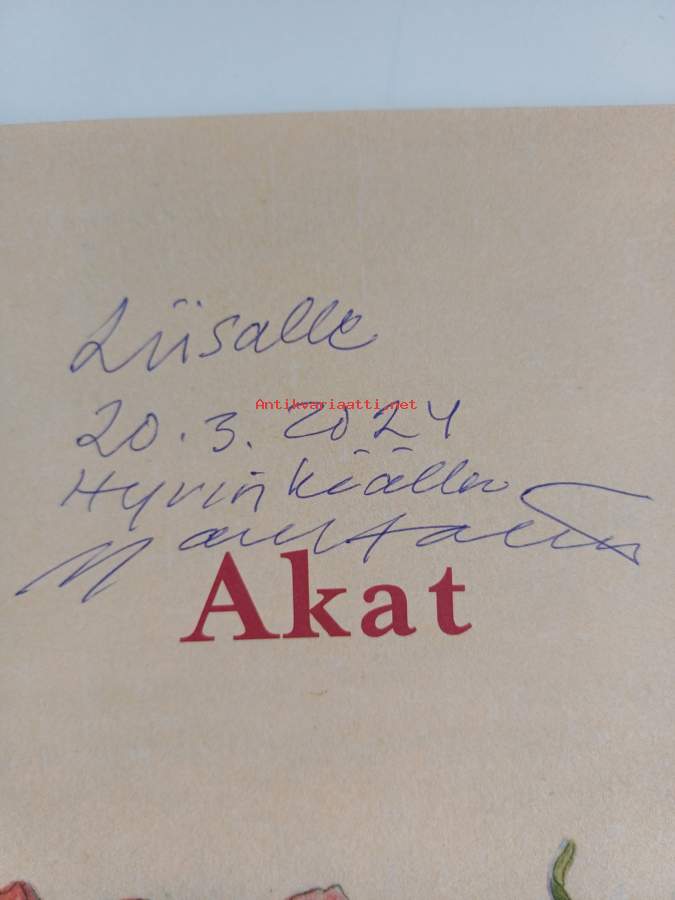 Liisalle
Antikvariaatti.net
20.3.2024
Hyvinkäällä
Akat